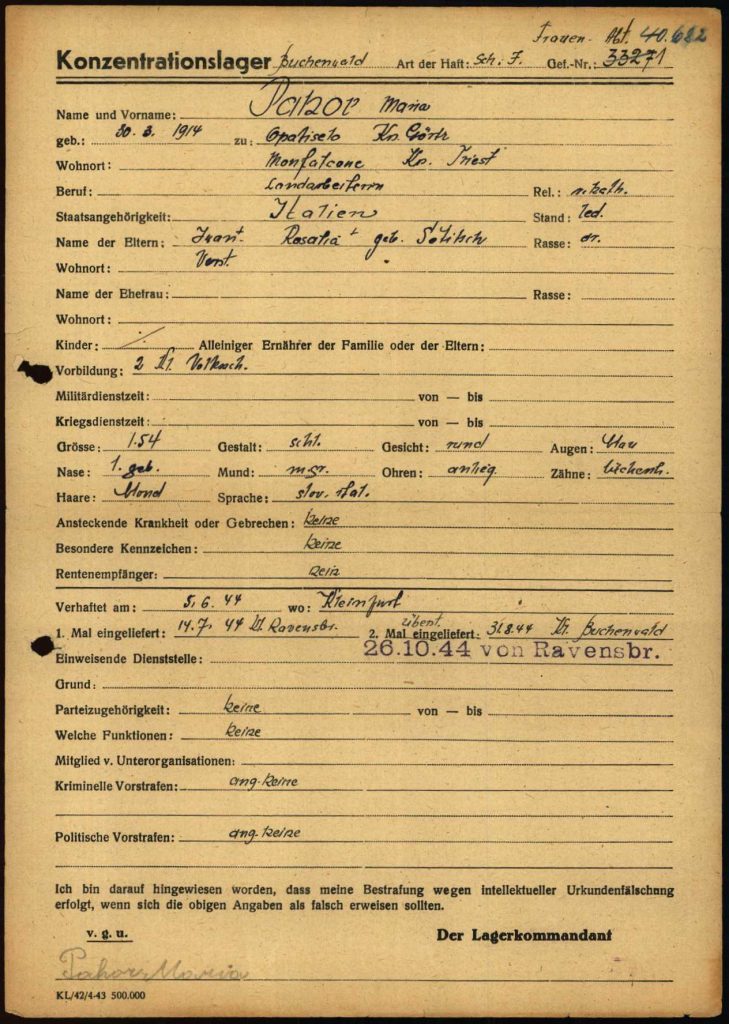 Frauen- Abt. 40.682
Konzentrationslager Buchenwald Art der Haft: Sch. J. Gef.-Nr.: 33271
Name und Vorname: Pahor Maria
geb.: 30. 3. 1914 zu: Opatiselo Kr. Görtz
Wohnort: Monfalcone Kr. Triest
Beruf: Landarbeiterin Rel.: r. kath.
Staatsangehörigkeit: Italien Stand: led.
Name der Eltern: Rosalia geb. Rasse: ar.
Wohnort:
Name der Ehefrau: Rasse:
Wohnort:
Kinder: ./. Alleiniger Ernährer der Familie oder der Eltern:
Vorbildung: 2 Kl. Volkssch.
Militärdienstzeit: von — bis
Kriegsdienstzeit: von — bis
Grösse: 1.54 Gestalt: schl. Gesicht: rund Augen: blau
Nase: l. geb. Mund: Ohren: Zähne: lückenh.
Haare: blond Sprache: slov. ital.
Ansteckende Krankheit oder Gebrechen: keine
Besondere Kennzeichen: keine
Rentenempfänger: nein
Verhaftet am: 5. 6. 44 wo:
1. Mal eingeliefert: 14.7. 44 Kl. Ravensbr. 2. Mal eingeliefert: überst. 31.8.44 Kl. Buchenwald
26.10.44 von Ravensbr.
Einweisende Dienststelle:
Grund:
Parteizugehörigkeit: keine von — bis
Welche Funktionen: keine
Mitglied v. Unterorganisationen:
Kriminelle Vorstrafen: ang. keine
Politische Vorstrafen: ang. keine
Ich bin darauf hingewiesen worden, dass meine Bestrafung wegen intellektueller Urkundenfälschung
erfolgt, wenn sich die obigen Angaben als falsch erweisen sollten.
v. g. u. Der Lagerkommandant
Pahor Maria
KL/42/4-43 500.000